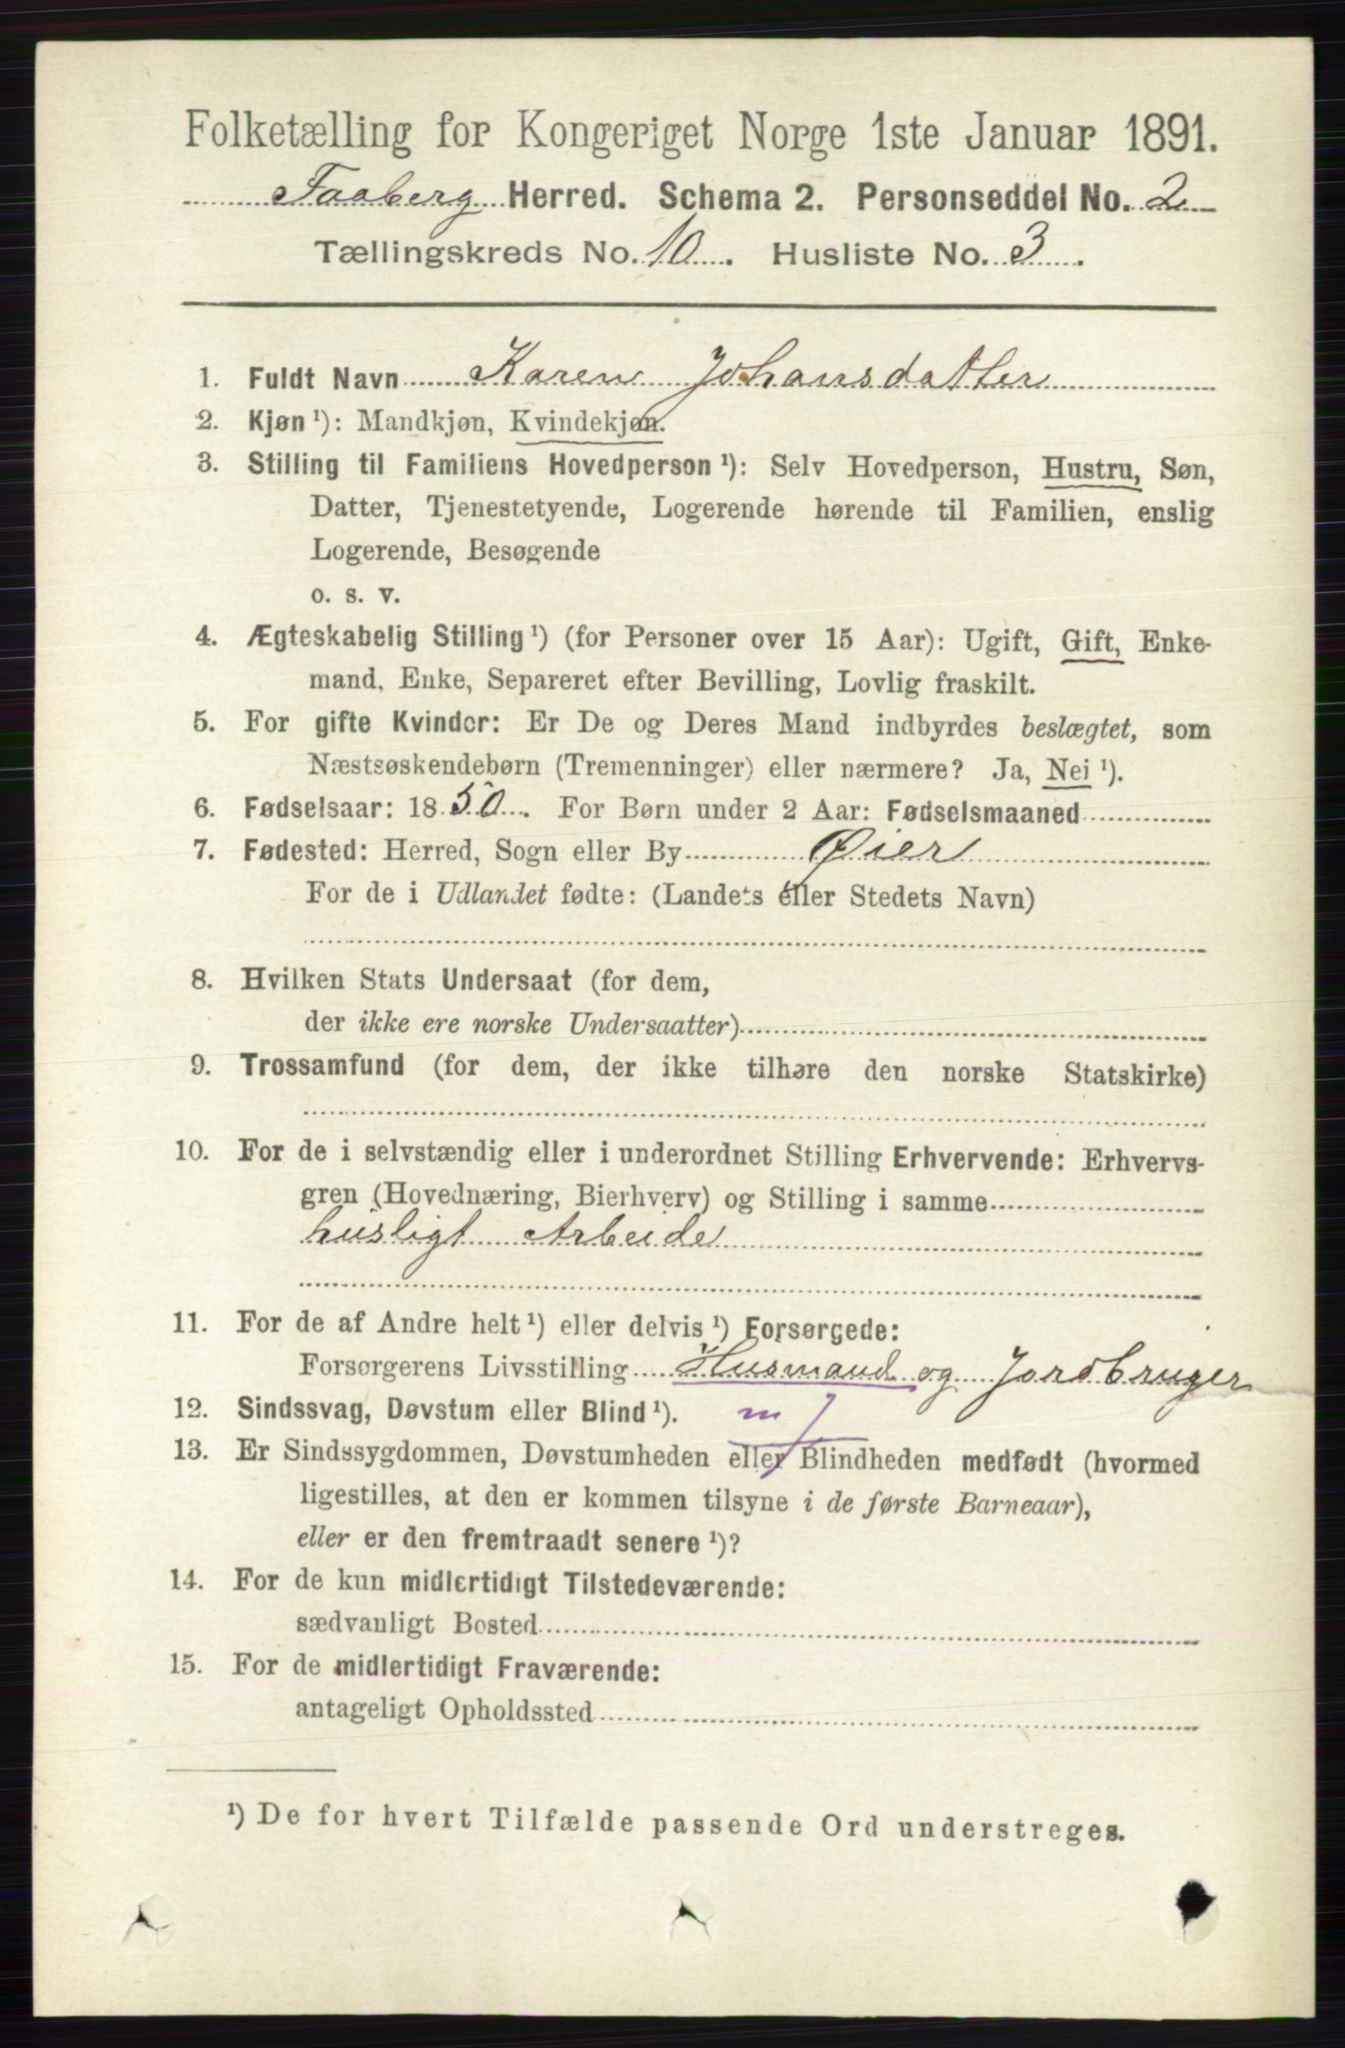 Folketælling for Kongeriget Norge 1ste Januar 1891.
Faaberg Herred. Schema 2. Personseddel No. 2
Tællingskreds No. 10. Husliste No. 3.
1. Fuldt Navn Karen Johansdatter
2. Kjøn ¹): Mandkjøn, Kvindekjøn.
3. Stilling til Familiens Hovedperson ¹): Selv Hovedperson, Hustru, Søn,
Datter, Tjenestetyende, Logerende hørende til Familien, enslig
Logerende, Besøgende
o. s. v.
4. Ægteskabelig Stilling ¹) (for Personer over 15 Aar): Ugift, Gift, Enke-
mand, Enke, Separeret efter Bevilling, Lovlig fraskilt.
5. For gifte Kvinder: Er De og Deres Mand indbyrdes beslægtet, som
Næstsøskendebørn (Tremenninger) eller nærmere? Ja, Nei ¹).
6. Fødselsaar: 1850. For Børn under 2 Aar: Fødselsmaaned
7. Fødested: Herred, Sogn eller By Øier
For de i Udlandet fødte: (Landets eller Stedets Navn)
8. Hvilken Stats Undersaat (for dem,
der ikke ere norske Undersaatter)
9. Trossamfund (for dem, der ikke tilhøre den norske Statskirke)
10. For de i selvstændig eller i underordnet Stilling Erhvervende: Erhvervs-
gren (Hovednæring, Bierhverv) og Stilling i samme
husligt Arbeide
11. For de af Andre helt ¹) eller delvis ¹) Forsørgede:
Forsørgerens Livsstilling Husmand og Jordbruger
12. Sindssvag, Døvstum eller Blind ¹). m
13. Er Sindssygdommen, Døvstumheden eller Blindheden medfødt (hvormed
ligestilles, at den er kommen tilsyne i de første Barneaar),
eller er den fremtraadt senere ¹)?
14. For de kun midlertidigt Tilstedeværende:
sædvanligt Bosted
15. For de midlertidigt Fraværende:
antageligt Opholdssted
¹) De for hvert Tilfælde passende Ord understreges.